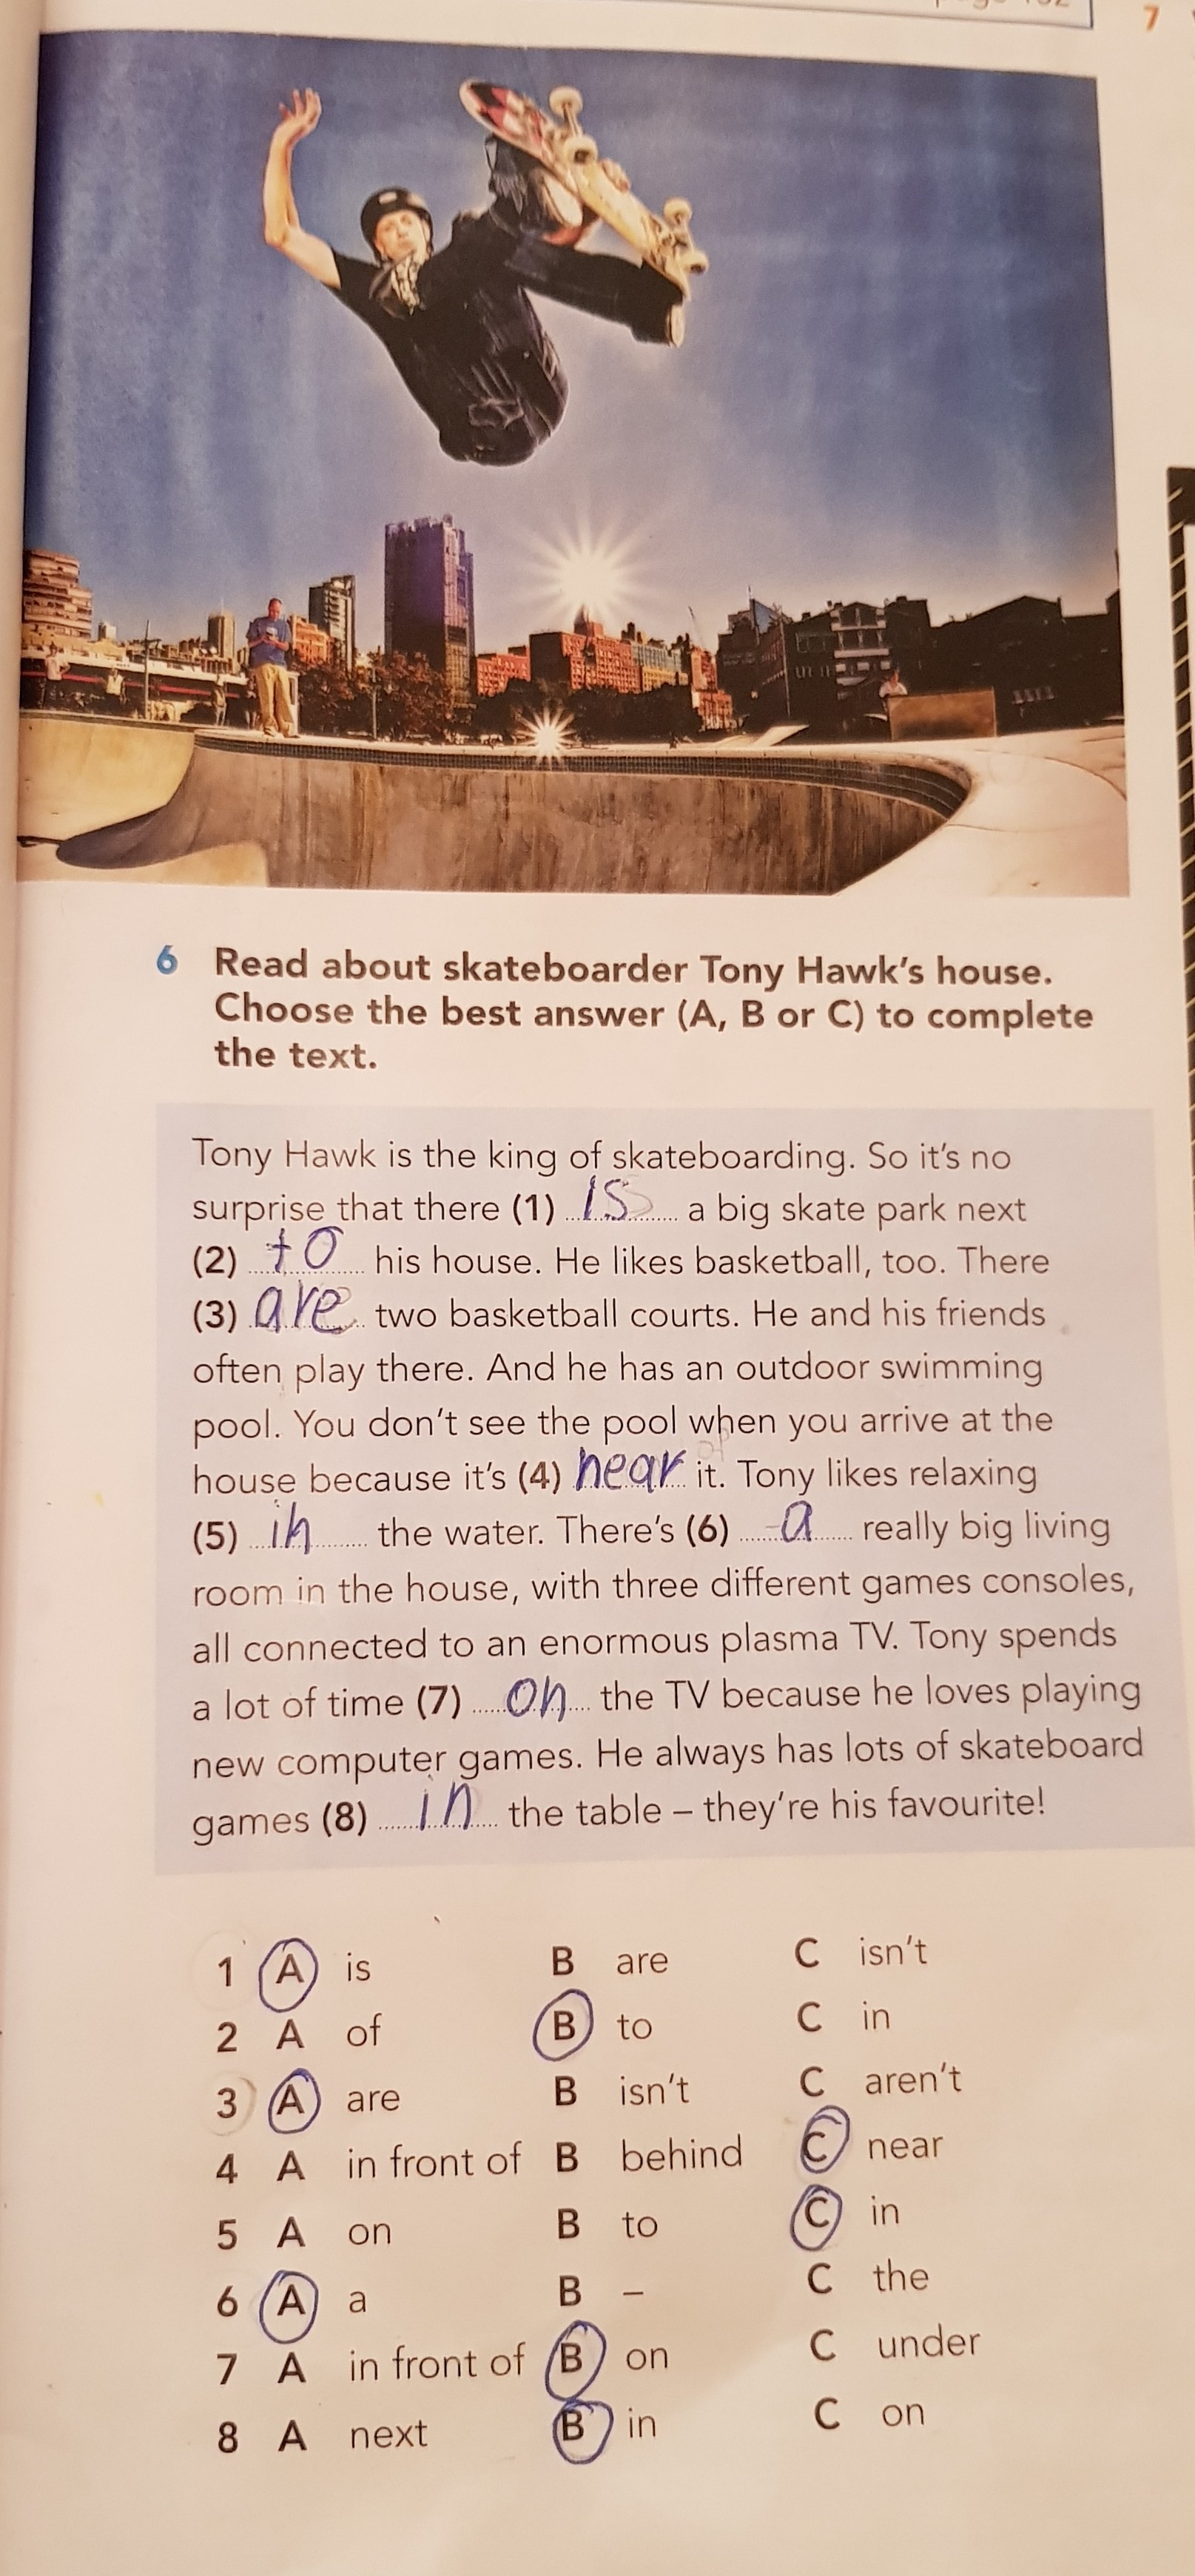 7
6 Read about skateboarder Tony Hawk's house.
Choose the best answer (A, B or C) to complete
the text.
Tony Hawk is the king of skateboarding. So it's no
surprise that there (1) is a big skate park next
(2) to his house. He likes basketball, too. There
(3) are two basketball courts. He and his friends
often play there. And he has an outdoor swimming
pool. You don't see the pool when you arrive at the
house because it's (4) near it. Tony likes relaxing
(5) in the water. There's (6) a really big living
room in the house, with three different games consoles,
all connected to an enormous plasma TV. Tony spends
a lot of time (7) on the TV because he loves playing
new computer games. He always has lots of skateboard
games (8) in the table – they're his favourite!
1 A is B are C isn't
2 A of B to C in
3 A are B isn't C aren't
4 A in front of B behind C near
5 A on B to C in
6 A a B – C the
7 A in front of B on C under
8 A next B in C on